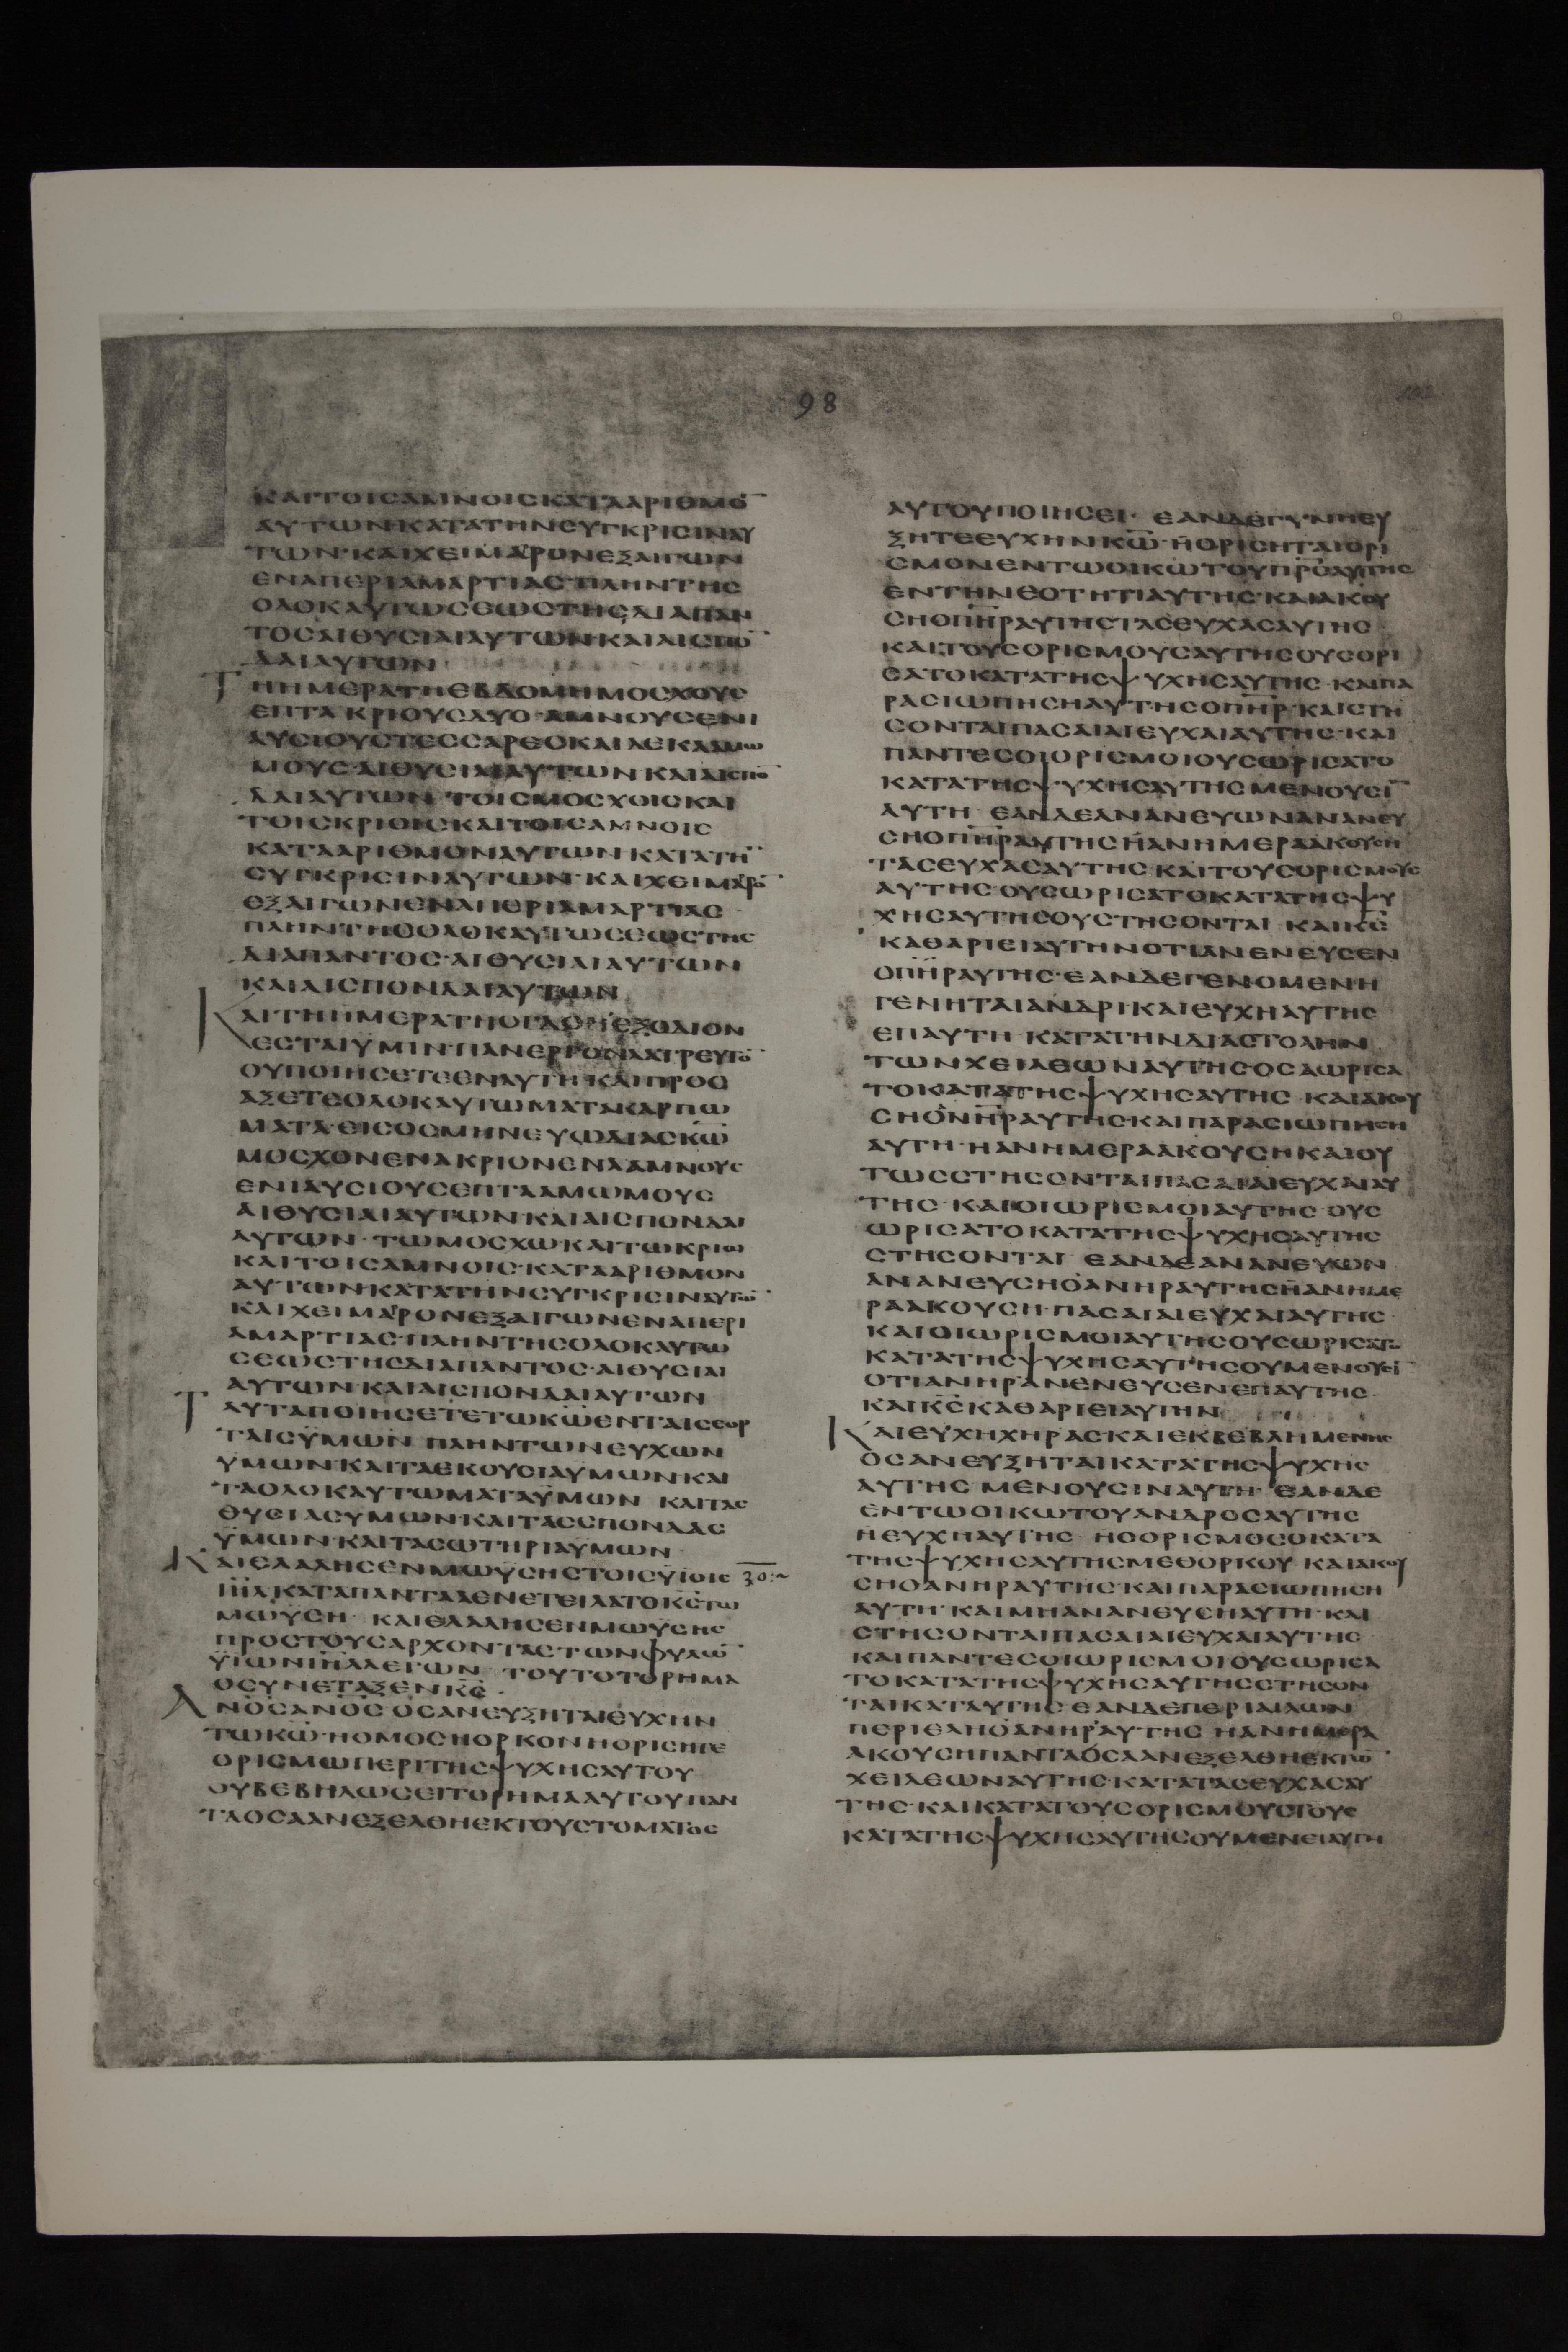 98
ΚΑΙΤΟΙΣΑΜΝΟΙΣΚΑΤΑΑΡΙΘΜΟ̅
ΑΥΤΩΝ·ΚΑΤΑΤΗΝΣΥΓΚΡΙΣΙΝΑΥ
ΤΩΝ·ΚΑΙΧΕΙΜΑΡΟΝΕΞΑΙΓΩΝ
ΕΝΑΠΕΡΙΑΜΑΡΤΙΑΣ·ΠΛΗΝΤΗΣ
ΟΛΟΚΑΥΤΩΣΕΩΣΤΗΣΔΙΑΠΑΝ
ΤΟΣΑΙΘΥΣΙΑΙΑΥΤΩΝΚΑΙΑΙΣΠΟ̅
ΔΑΙΑΥΤΩΝ
ΤΗΗΜΕΡΑΤΗΕΒΔΟΜΗΜΟΣΧΟΥΣ
ΕΠΤΑΚΡΙΟΥΣΔΥΟ·ΑΜΝΟΥΣΕΝΙ
ΑΥΣΙΟΥΣΤΕΣΣΑΡΕΣΚΑΙΔΕΚΑΑΜΩ
ΜΟΥΣ·ΑΙΘΥΣΙΑΙΑΥΤΩΝΚΑΙΑΙΣΠΟ̅
ΔΑΙΑΥΤΩΝ·ΤΟΙΣΜΟΣΧΟΙΣΚΑΙ
ΤΟΙΣΚΡΙΟΙΣΚΑΙΤΟΙΣΑΜΝΟΙΣ
ΚΑΤΑΑΡΙΘΜΟΝΑΥΤΩΝΚΑΤΑΤΗ̅
ΣΥΓΚΡΙΣΙΝΑΥΤΩΝ·ΚΑΙΧΕΙΜΑΡΟ̅
ΕΞΑΙΓΩΝΕΝΑΠΕΡΙΑΜΑΡΤΙΑΣ
ΠΛΗΝΤΗΣΟΛΟΚΑΥΤΩΣΕΩΣΤΗΣ
ΔΙΑΠΑΝΤΟΣ·ΑΙΘΥΣΙΑΙΑΥΤΩΝ
ΚΑΙΑΙΣΠΟΝΔΑΙΑΥΤΩΝ
ΚΑΙΤΗΗΜΕΡΑΤΗΟΓΔΟΗΕΞΟΔΙΟΝ
ΕΣΤΑΙΥΜΙΝ·ΠΑΝΕΡΓΟΝΛΑΤΡΕΥΤΟ̅
ΟΥΠΟΙΗΣΕΤΕΕΝΑΥΤΗ·ΚΑΙΠΡΟΣ
ΑΞΕΤΕΟΛΟΚΑΥΤΩΜΑΤΑΚΑΡΠΩ
ΜΑΤΑ·ΕΙΣΟΣΜΗΝΕΥΩΔΙΑΣΚΩ̅
ΜΟΣΧΟΝΕΝΑΚΡΙΟΝΕΝΑΑΜΝΟΥΣ
ΕΝΙΑΥΣΙΟΥΣΕΠΤΑΑΜΩΜΟΥΣ
ΑΙΘΥΣΙΑΙΑΥΤΩΝ·ΚΑΙΑΙΣΠΟΝΔΑΙ
ΑΥΤΩΝ·ΤΩΜΟΣΧΩΚΑΙΤΩΚΡΙΩ
ΚΑΙΤΟΙΣΑΜΝΟΙΣ·ΚΑΤΑΑΡΙΘΜΟΝ
ΑΥΤΩΝΚΑΤΑΤΗΝΣΥΓΚΡΙΣΙΝΑΥΤΩ̅
ΚΑΙΧΕΙΜΑΡΟΝΕΞΑΙΓΩΝΕΝΑΠΕΡΙ
ΑΜΑΡΤΙΑΣ·ΠΛΗΝΤΗΣΟΛΟΚΑΥΤΩ
ΣΕΩΣΤΗΣΔΙΑΠΑΝΤΟΣ·ΑΙΘΥΣΙΑΙ
ΑΥΤΩΝ·ΚΑΙΑΙΣΠΟΝΔΑΙΑΥΤΩΝ
ΤΑΥΤΑΠΟΙΗΣΕΤΕΤΩΚΩ̅ΕΝΤΑΙΣΕΟΡ
ΤΑΙΣΥΜΩΝ·ΠΛΗΝΤΩΝΕΥΧΩΝ
ΥΜΩΝ·ΚΑΙΤΑΕΚΟΥΣΙΑΥΜΩΝΚΑΙ
ΤΑΟΛΟΚΑΥΤΩΜΑΤΑΥΜΩΝ ΚΑΙΤΑΣ
ΘΥΣΙΑΣΥΜΩΝ·ΚΑΙΤΑΣΣΠΟΝΔΑΣ
ΥΜΩΝ·ΚΑΙΤΑΣΩΤΗΡΙΑΥΜΩΝ
ΚΑΙΕΛΑΛΗΣΕΝΜΩΥΣΗΣΤΟΙΣΥΙΟΙΣ 30:~
ΙΗ̅Λ̅ΚΑΤΑΠΑΝΤΑΑΕΝΕΤΕΙΛΑΤΟΚ̅Σ̅ΤΩ
ΜΩΥΣΗ ΚΑΙΕΛΑΛΗΣΕΝΜΩΥΣΗΣ
ΠΡΟΣΤΟΥΣΑΡΧΟΝΤΑΣΤΩΝΦΥΛΩ̅
ΥΙΩΝΙΗ̅Λ̅ΛΕΓΩΝ ΤΟΥΤΟΤΟΡΗΜΑ
ΟΣΥΝΕΤΑΞΕΝΚ̅Σ̅
ΑΝΟ̅Σ̅ΑΝΟ̅Σ̅ΟΣΑΝΕΥΞΗΤΑΙΕΥΧΗΝ
ΤΩΚΩ̅·ΗΟΜΟΣΗΟΡΚΟΝΗΟΡΙΣΗΤΕ
ΟΡΙΣΜΩΠΕΡΙΤΗΣΨΥΧΗΣΑΥΤΟΥ
ΟΥΒΕΒΗΛΩΣΕΙΤΟΡΗΜΑΑΥΤΟΥΠΑΝ
ΤΑΟΣΑΑΝΕΞΕΛΘΗΕΚΤΟΥΣΤΟΜΑΤΟΣ
ΑΥΤΟΥΠΟΙΗΣΕΙ· ΕΑΝΔΕΓΥΝΗΕΥ
ΞΗΤΕΕΥΧΗΝΚΩ̅·ΗΟΡΙΣΗΤΑΙΟΡΙ
ΣΜΟΝΕΝΤΩΟΙΚΩΤΟΥΠΡ̅Σ̅ΑΥΤΗΣ
ΕΝΤΗΝΕΟΤΗΤΙΑΥΤΗΣ·ΚΑΙΑΚΟΥ
ΣΗΟΠΗ̅Ρ̅ΑΥΤΗΣΤΑΣΕΥΧΑΣΑΥΤΗΣ
ΚΑΙΤΟΥΣΟΡΙΣΜΟΥΣΑΥΤΗΣΟΥΣΟΡΙ
ΣΑΤΟΚΑΤΑΤΗΣΨΥΧΗΣΑΥΤΗΣ·ΚΑΙΠΑ
ΡΑΣΙΩΠΗΣΗΑΥΤΗΣΟΠΗ̅Ρ̅·ΚΑΙΣΤΗ
ΣΟΝΤΑΙΠΑΣΑΙΑΙΕΥΧΑΙΑΥΤΗΣ·ΚΑΙ
ΠΑΝΤΕΣΟΙΟΡΙΣΜΟΙΟΥΣΩΡΙΣΑΤΟ
ΚΑΤΑΤΗΣΨΥΧΗΣΑΥΤΗΣΜΕΝΟΥΣΙ̅
ΑΥΤΗ· ΕΑΝΔΕΑΝΑΝΕΥΩΝΑΝΑΝΕΥ
ΣΗΟΠΗ̅Ρ̅ΑΥΤΗΣΗΑΝΗΜΕΡΑΑΚΟΥΣΗ
ΤΑΣΕΥΧΑΣΑΥΤΗΣ·ΚΑΙΤΟΥΣΟΡΙΣΜΟΥΣ
ΑΥΤΗΣ·ΟΥΣΩΡΙΣΑΤΟΚΑΤΑΤΗΣΨΥ
ΧΗΣΑΥΤΗΣΟΥΣΤΗΣΟΝΤΑΙ ΚΑΙΚ̅Σ̅
ΚΑΘΑΡΙΕΙΑΥΤΗΝΟΤΙΑΝΕΝΕΥΣΕΝ
ΟΠΗ̅Ρ̅ΑΥΤΗΣ·ΕΑΝΔΕΓΕΝΟΜΕΝΗ
ΓΕΝΗΤΑΙΑΝΔΡΙΚΑΙΕΥΧΗΑΥΤΗΣ
ΕΠΑΥΤΗ ΚΑΤΑΤΗΝΔΙΑΣΤΟΛΗΝ
ΤΩΝΧΕΙΛΕΩΝΑΥΤΗΣΟΣΑΩΡΙΣΑ
ΤΟΚΑΤΑΤΗΣΨΥΧΗΣΑΥΤΗΣ·ΚΑΙΑΚΟΥ
ΣΗΟΝΗΡΑΥΤΗΣ·ΚΑΙΠΑΡΑΣΙΩΠΗΣΗ
ΑΥΤΗ·ΗΑΝΗΜΕΡΑΑΚΟΥΣΗΚΑΙΟΥ
ΤΩΣΣΤΗΣΟΝΤΑΙΠΑΣΑΙΑΙΕΥΧΑΙΑΥ
ΤΗΣ·ΚΑΙΟΙΩΡΙΣΜΟΙΑΥΤΗΣ·ΟΥΣ
ΩΡΙΣΑΤΟΚΑΤΑΤΗΣΨΥΧΗΣΑΥΤΗΣ
ΣΤΗΣΟΝΤΑΙ ΕΑΝΔΕΑΝΑΝΕΥΩΝ
ΑΝΑΝΕΥΣΗΟΑΝΗΡΑΥΤΗΣΗΑΝΗΜΕ
ΡΑΑΚΟΥΣΗ·ΠΑΣΑΙΑΙΕΥΧΑΙΑΥΤΗΣ
ΚΑΙΟΙΩΡΙΣΜΟΙΑΥΤΗΣΟΥΣΩΡΙΣΑΤΟ
ΚΑΤΑΤΗΣΨΥΧΗΣΑΥΤΗΣΟΥΜΕΝΟΥΣΙ̅
ΟΤΙΑΝΗΡΑΝΕΝΕΥΣΕΝΕΠΑΥΤΗΣ·
ΚΑΙΚ̅Σ̅ΚΑΘΑΡΙΕΙΑΥΤΗΝ
ΚΑΙΕΥΧΗΧΗΡΑΣΚΑΙΕΚΒΕΒΛΗΜΕΝΗΣ
ΟΣΑΝΕΥΞΗΤΑΙΚΑΤΑΤΗΣΨΥΧΗΣ
ΑΥΤΗΣ·ΜΕΝΟΥΣΙΝΑΥΤΗ·ΕΑΝΔΕ
ΕΝΤΩΟΙΚΩΤΟΥΑΝΔΡΟΣΑΥΤΗΣ
ΗΕΥΧΗΑΥΤΗΣ· ΗΟΟΡΙΣΜΟΣΟΚΑΤΑ
ΤΗΣΨΥΧΗΣΑΥΤΗΣΜΕΘΟΡΚΟΥ·ΚΑΙΑΚΟΥ
ΣΗΟΑΝΗΡΑΥΤΗΣ·ΚΑΙΠΑΡΑΣΙΩΠΗΣΗ
ΑΥΤΗ·ΚΑΙΜΗΑΝΑΝΕΥΣΗΑΥΤΗ·ΚΑΙ
ΣΤΗΣΟΝΤΑΙΠΑΣΑΙΑΙΕΥΧΑΙΑΥΤΗΣ
ΚΑΙΠΑΝΤΕΣΟΙΩΡΙΣΜΟΙΟΥΣΩΡΙΣΑ
ΤΟΚΑΤΑΤΗΣΨΥΧΗΣΑΥΤΗΣΣΤΗΣΟΝ
ΤΑΙΚΑΤΑΥΤΗΣ·ΕΑΝΔΕΠΕΡΙΑΙΑΩΝ
ΠΕΡΙΕΛΗΟΑΝΗΡΑΥΤΗΣ·ΗΑΝΗΜΕΡΑ
ΑΚΟΥΣΗΠΑΝΤΑΟΣΑΑΝΕΞΕΛΘΗΕΚΤΩ̅
ΧΕΙΛΕΩΝΑΥΤΗΣ·ΚΑΤΑΤΑΣΕΥΧΑΣΑΥ
ΤΗΣ·ΚΑΙΚΑΤΑΤΟΥΣΟΡΙΣΜΟΥΣΤΟΥΣ
ΚΑΤΑΤΗΣΨΥΧΗΣΑΥΤΗΣΟΥΜΕΝΕΙΑΥΤΗ